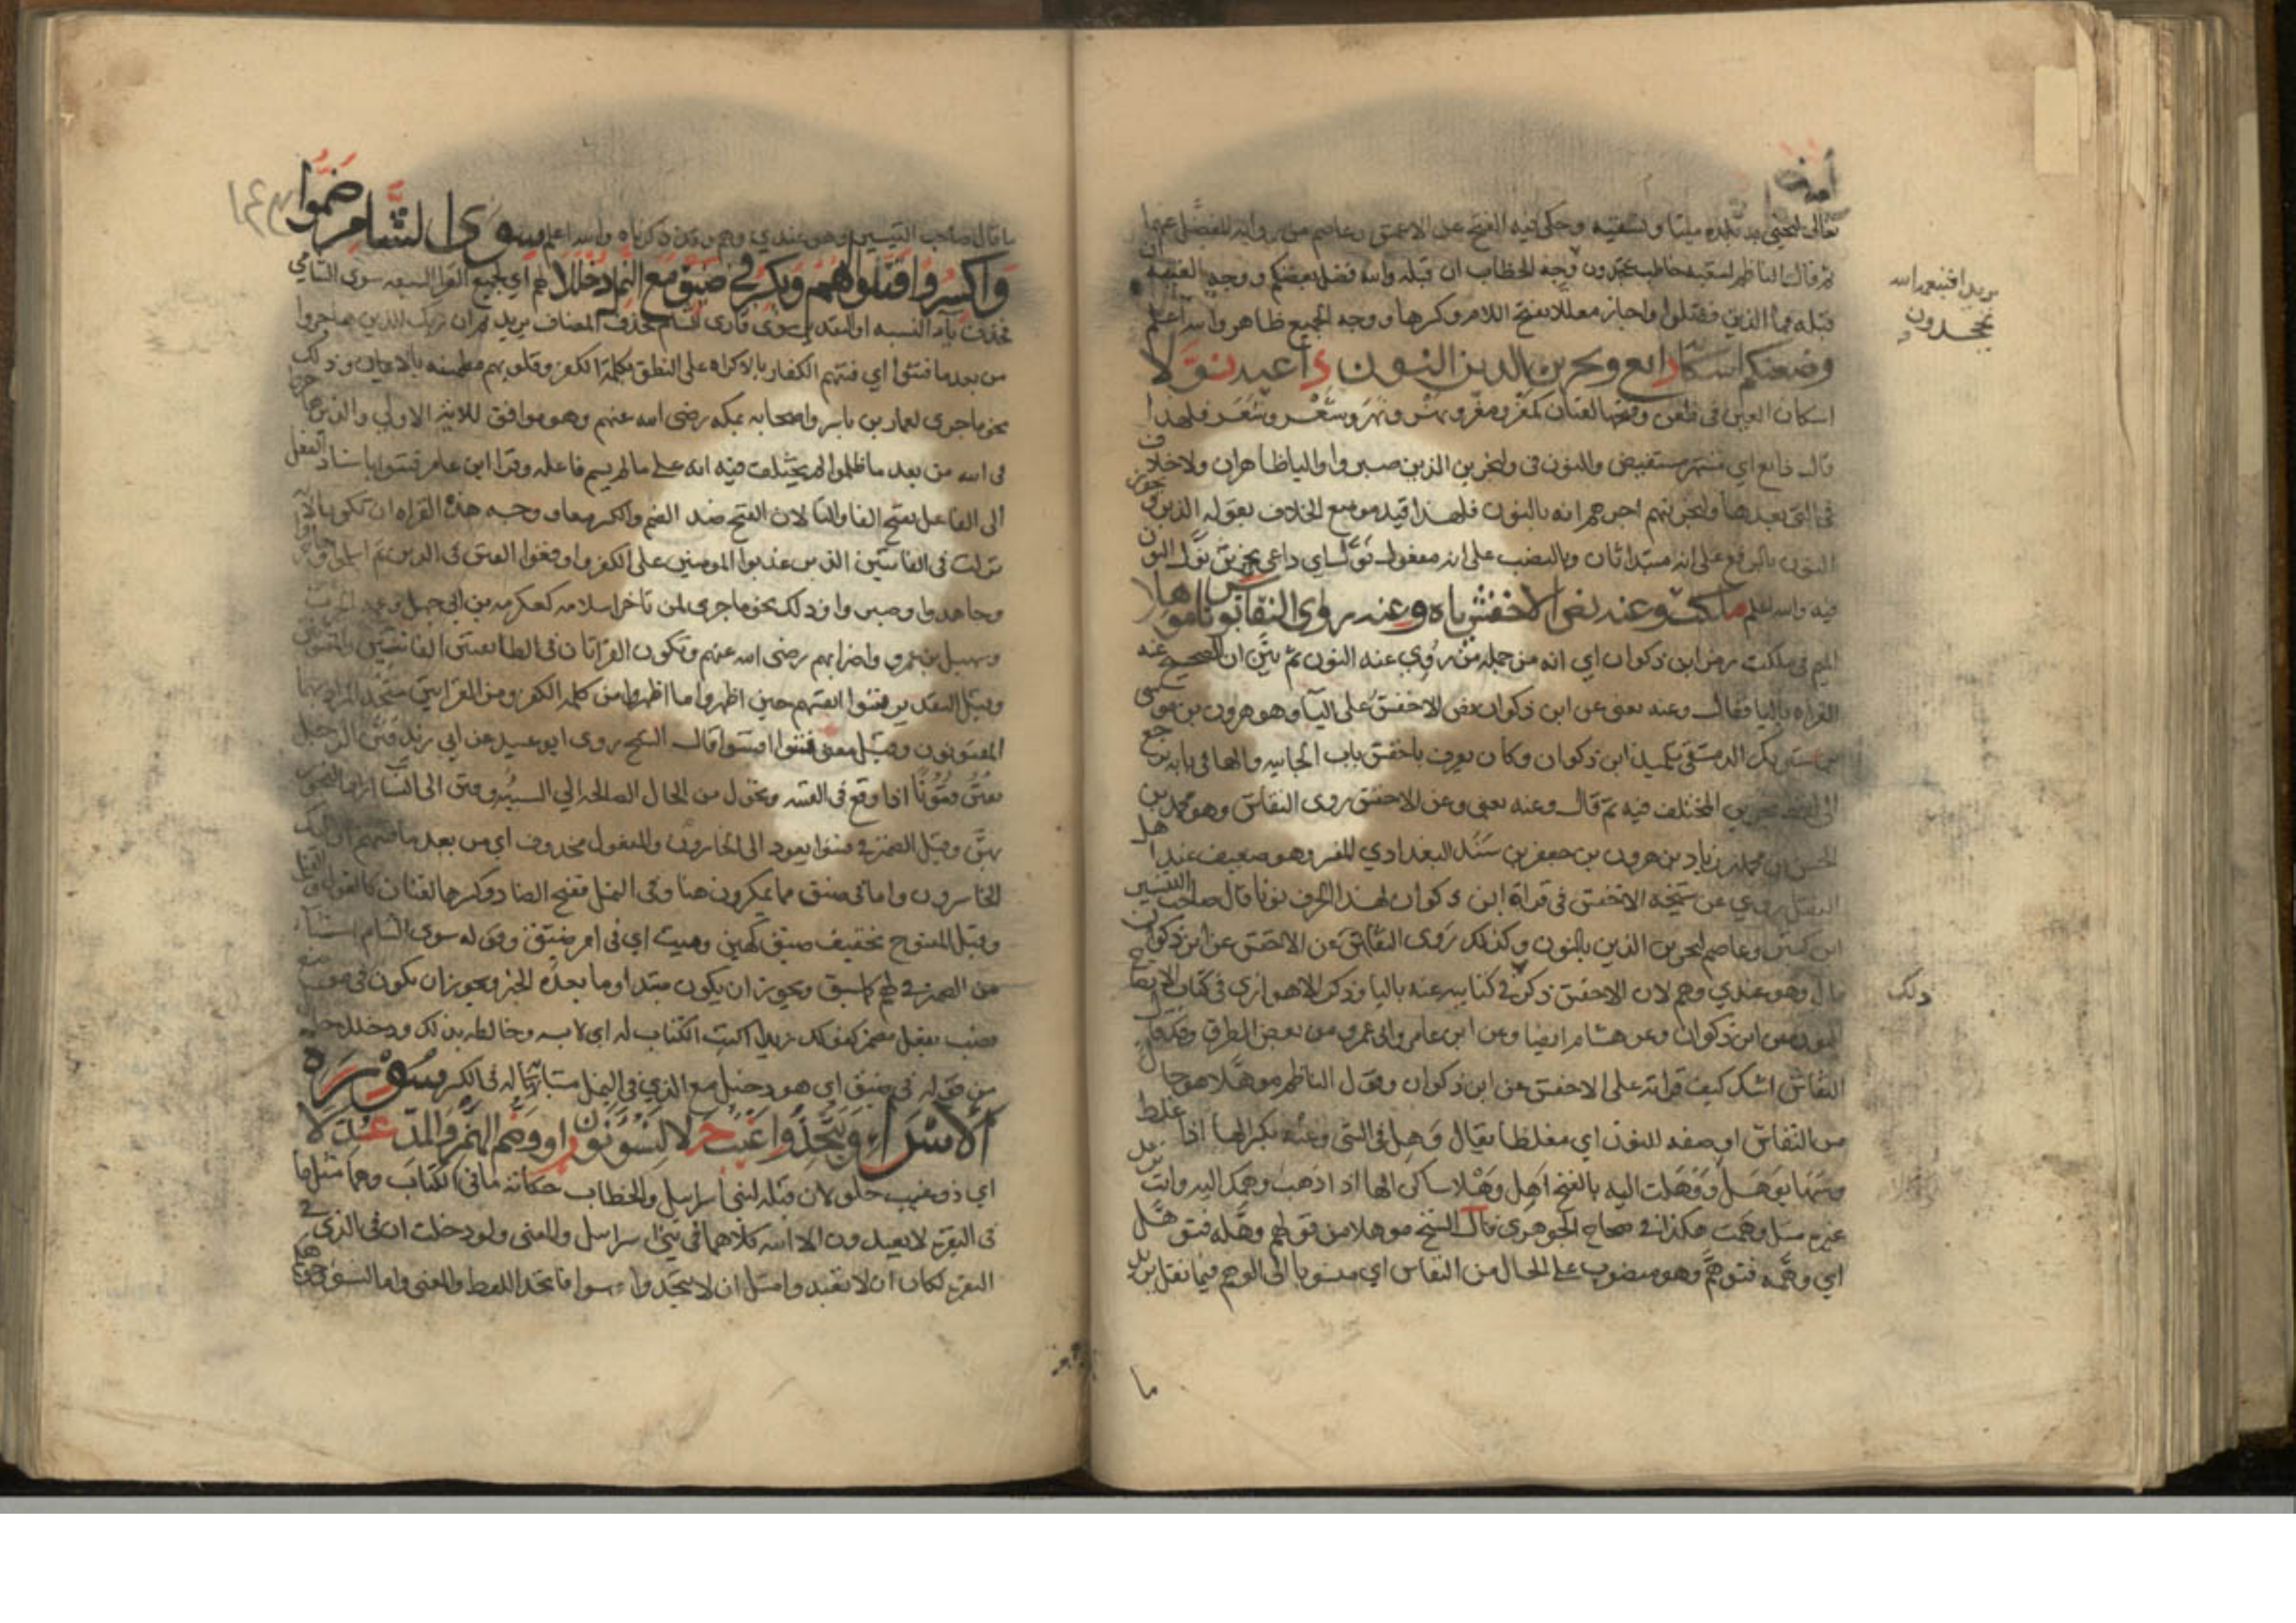 ثم قال الناظم لنفسه خاطب تجحدون وجه الخطاب ان قبله والله فضل بعضكم ووجه الغيبة
قبله فما الذين فضلوا واجاز معللا بفتح اللام وكسرها ووجه الجميع ظاهر والله اعلم
وظعنكم اسكانه ذائع ونجزين الذين النون داعيه نولا
اسكان العين في ظعن وفتحها لغتان كمعز ومعز ونهر ونهر وشعر وشعر فلهذا
قال ذائع اي مشتهر مستفيض والنون في ولنجزين الذين صبروا والياء ظاهران ولا خلاف
في التي بعدها ولنجزينهم اجرهم انه بالنون فلهذا قيد موضع الخلاف بقوله الذين
النون بالرفع على انه مبتدا ثان وبالنصب على انه مفعول نولا اي داعي نجزين نول النون
فيه والله اعلم ملكت وعنه نص الاخفش ياءه وعنه روى النقاش نونا موهلا
الميم في ملكت رمز ابن ذكوان اي انه من جملة من روي عنه النون ثم بين ان الصحيح عنه
القراة باليا فقال وعنه يعني عن ابن ذكوان نص الاخفش على الياء وهو هرون بن موسى
بن شريك الدمشقي تلميذ ابن ذكوان وكان يعرف باخفش باب الجابية والها في ياءه ترجع
الى لفظ نجزين المختلف فيه ثم قال وعنه يعني وعن الاخفش روى النقاش وهو محمد بن
الحسن بن محمد بن زياد بن هرون بن جعفر بن سند البغدادي المفسر وهو ضعيف عند اهل
النقل روي عن شيخه الاخفش في قراة ابن ذكوان لهذا الحرف نونا قال صاحب التيسير
ابن كثير وعاصم لنجزين الذين بالنون وكذلك روى النقاش عن الاخفش عن ابن ذكوان
قال وهو عندي وهم لان الاخفش ذكر في كتابيه عنه باليا وذكر الاهوازي في كتاب الايضاح
النون عن ابن ذكوان وعن هشام ايضا وعن ابن عامر وابي عمرو من بعض الطرق
النقاش اشك كيف قراته على الاخفش عن ابن ذكوان وقول الناظم موهلا هو حال
من النقاش او صفة للنون اي مغلطا يقال وهل في الشي وعنه بكسر الها اذا غلط
وسها يوهل ووهلت اليه بالفتح اهل وهلا ساكن الها اذا ذهب وهمك اليه وانت تريد
غيره مثل وهمت هكذا في صحاح الجوهري قال الشيخ موهلا من قولهم وهله فتوهل
اي وهمه فتوهم وهو منصوب على الحال من النقاش اي منسوبا الى الوهم فيما نقل
يريد افبنعمة الله
يجحدون
ذلك
ما
ما قال صاحب التيسير وهو عندي وهم وقد ذكرناه والله اعلم سوى الشام ضموا
واكسروا فتنوا لهم ويكسر في ضيق مع النمل دخللا لهم اي لجميع القرا السبعه سوى الشامي
فحذف ياء النسبه او التقدير سوى قارئ الشام فحذف المضاف يريد ثم ان ربك للذين هاجروا
من بعد ما فتنوا اي فتنهم الكفار بالاكراه على النطق بكلمة الكفر وقلوبهم مطمئنه بالايمان وذلك
نحو ما جرى لعمار بن ياسر واصحابه بمكه رضي الله عنهم وهو موافق للاية الاولى والذين هاجروا
في الله من بعد ما ظلموا لم يختلف فيه انه على ما لم يسم فاعله وقرا ابن عامر فتنوا باسناد الفعل
الى الفاعل بفتح الفا والتا لان الفتح ضد الضم والكسر معا ووجه هذه القراه ان تكون الاية
نزلت في الفاتنين الذين عذبوا المومنين على الكفر واوقعوا الفتن في الدين ثم اسلموا وهاجروا
وجاهدوا وصبروا وذلك نحو ما جرى لمن تاخر اسلامه كعكرمه بن ابي جهل
وسهيل بن عمرو واضرابهم رضي الله عنهم وتكون القراتان في الطائفتين الفاتنين والمفتونين
وقيل التقدير فتنوا انفسهم حين اظهروا ما اظهروا من كلمة الكفر ومن القراتين متحد المراد بهما
المفتونون وقيل معنى فتنوا افتتنوا قال الشيخ روى ابو عبيد عن ابي زيد فتن الرجل
يفتن فتونا اذا وقع في الفتنه وتحول من الحال الصالحه الى السيئه وفتن الى النسا اراد الفجور
بهن وقيل الضمير في فتنوا يعود الى الخاسرون والمفعول محذوف اي من بعد ما فتنهم اولئك
الخاسرون واما في ضيق مما يمكرون هنا وفي النمل ففتح الضاد وكسرها لغتان كالقول والقيل
وقيل المفتوح تخفيف ضيق كهين وميت اي في امر ضيق وقوله سوى الشام استثناء
من الضمير في لهم كما سبق ويجوز ان يكون مبتدا وما بعده الخبر ويجوز ان يكون في موضع
نصب بفعل مضمر كقولك زيدا اكتب الكتاب له اي لابسه وخالطه بذلك ودخللا حال
من قوله في ضيق اي هو دخيل مع الذي في النمل مشابها له في الكسر سورة
الاسراء ويتخذوا غيب حلا ليسوء نون راو وضم الهمز والمد عدلا
اي ذو غيب حلو لان قبله لبني اسرايل والخطاب حكاية ما في الكتاب وهما مثل ما
في البقره لا يعبدون الا الله كلاهما في بني اسرايل والمعنى ولو دخلت ان في الذي في
البقره لكان ان لا تعبدوا مثل ان لا تتخذوا سوا فاتحد اللفظ والمعنى واما